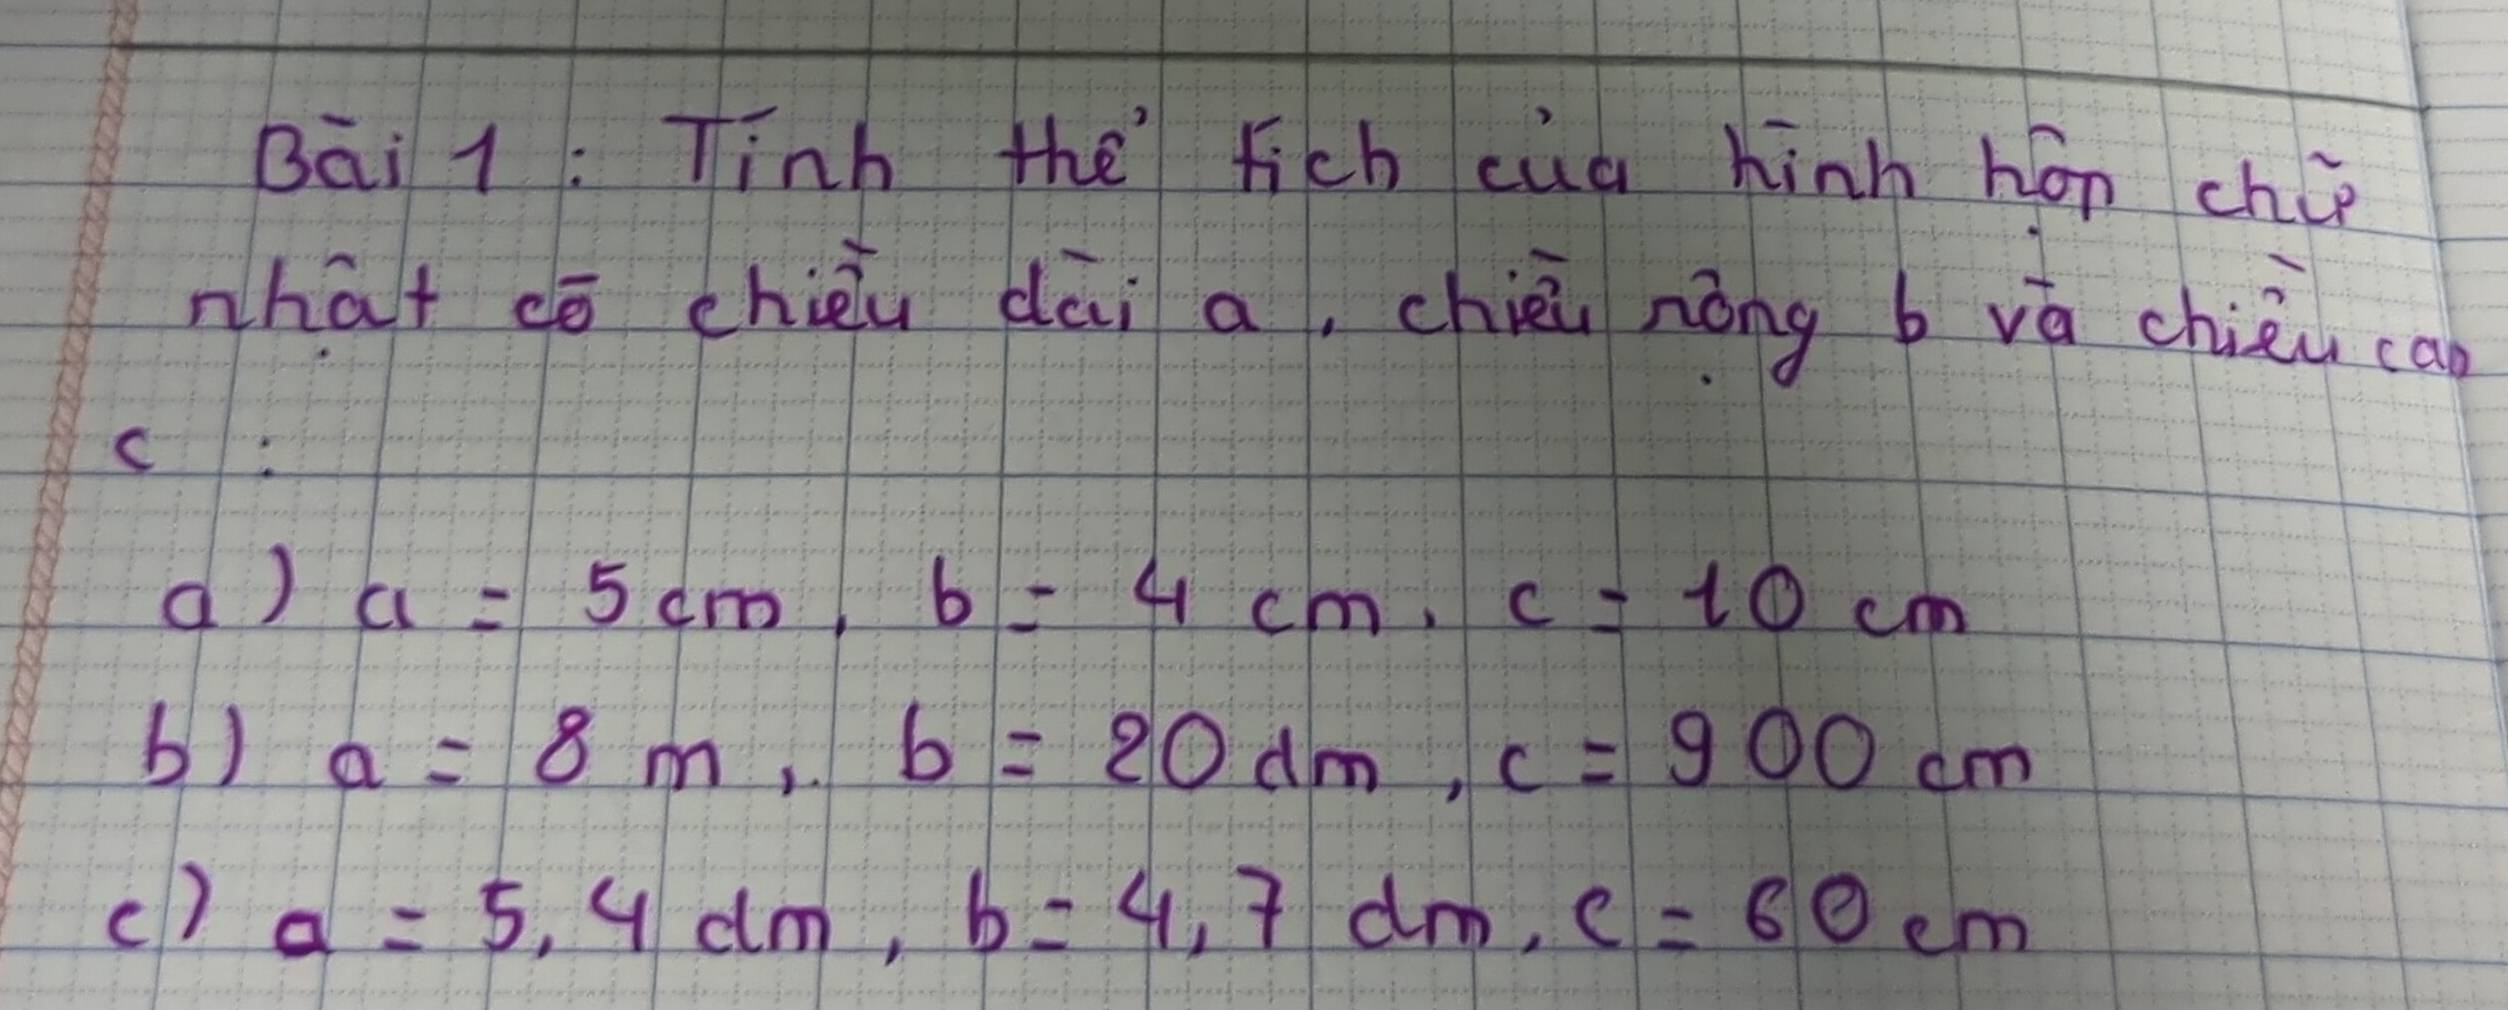 Bài 1 : Tính thể tích của hình hộp chữ
nhật có chiều dài a, chiều rộng b và chiều cao
c :
a) a = 5 cm, b = 4 cm, c = 10 cm
b) a = 8 m, b = 20 dm, c = 900 cm
c) a = 5,4 dm, b = 4,7 dm, c = 60 cm